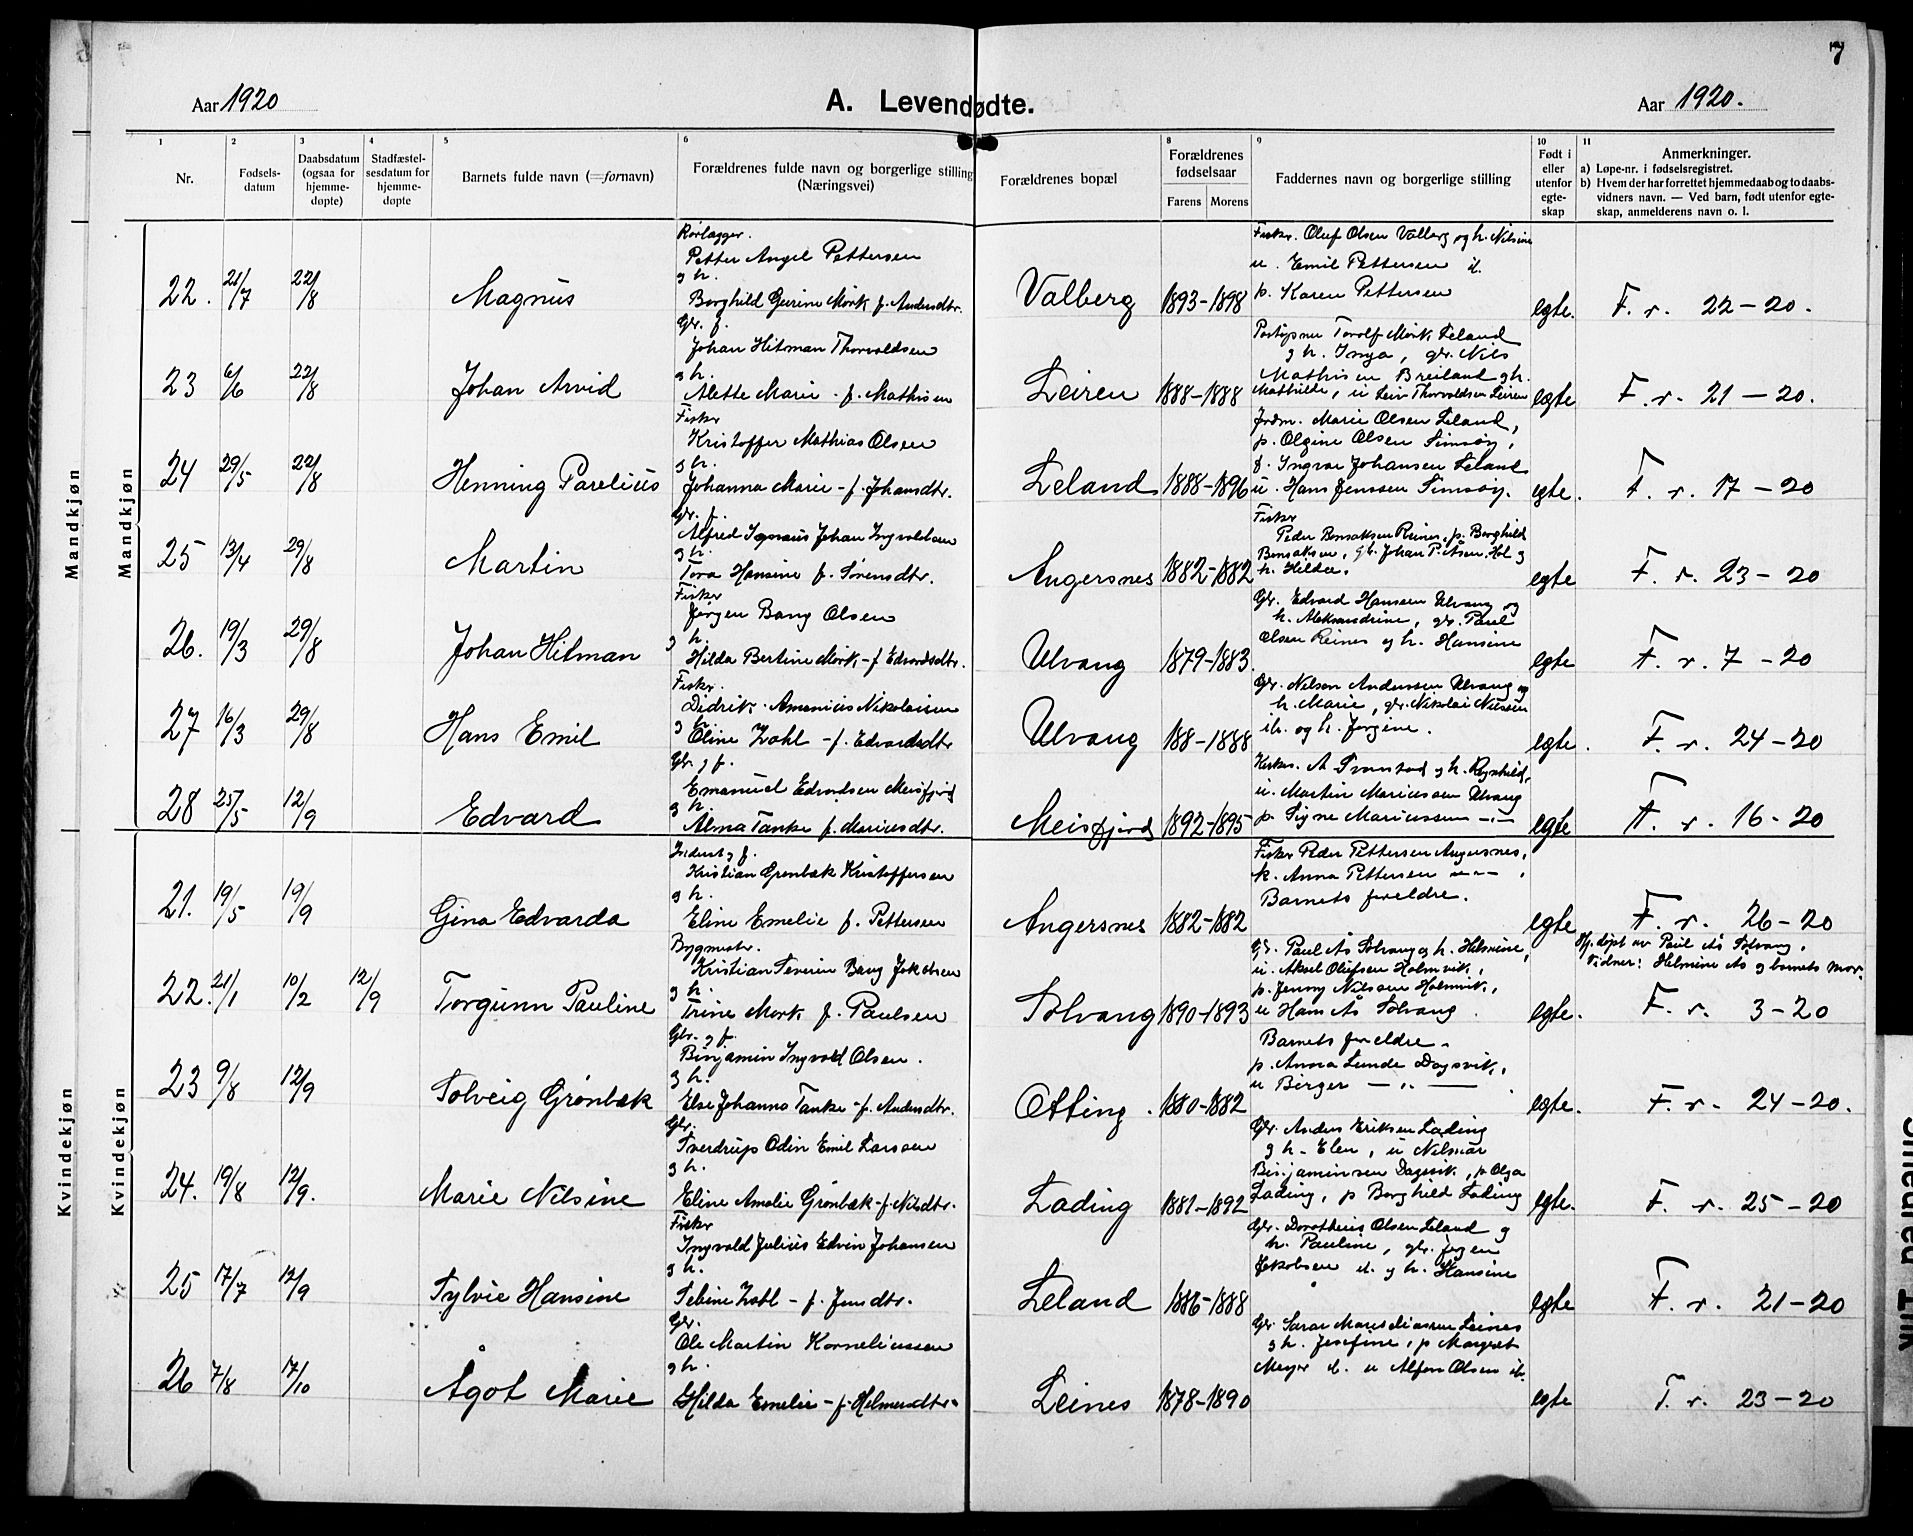 7
Aar 1920
A. Levendødte.
Aar 1920.
1
2
3
4
5
6
8
9
10
11
Nr.
Fødsels-
datum
Daabsdatum
(ogsaa for
hjemme-
døpte)
Stadfæstel-
sesdatum for
hjemme-
døpte
Barnets fulde navn (=fornavn)
Forældrenes fulde navn og borgerlige stilling
(Næringsvei)
Forældrenes bopæl
Forældrenes
fødselsaar
Farens
Morens
Faddernes navn og borgerlige stilling
Født i
eller
utenfor
egte-
skap
Anmerkninger.
a) Løpe-nr. i fødselsregistret.
b) Hvem der har forrettet hjemmedaab og to daabs-
vidners navn. — Ved barn, født utenfor egte-
skap, anmelderens navn o. l.
Mandkjøn
Mandkjøn
22. 21/7 22/8 Magnus
Rørlægger.
Petter Angel Pettersen
g h.
Borghild Gurine Mørk f. Andersdtr.
Valberg 1893-1898
Fisker. Oluf Olsen Valberg og h. Nilsine
u. Emil Pettersen d.
p. Karen Pettersen
egte. F. r. 22-20.
23 6/6 22/8 Johan Arvid
Gbr. f.
Johan Hilman Thorvaldsen
g h.
Alette Marie - f. Mathisen
Leiren 1888-1888
Torolf Mørk Leland
g h. Inga, gbr. Nils
Mathisen Breiland g h.
Mathilde, u Leiv Thorvaldsen Leiren
egte F. r. 21-20.
24 29/5 22/8 Henning Parelius
Fisker
Kristoffer Mathias Olsen
g h.
Johanna Marie - f. Johansdtr.
Leland 1888-1896
Jordm. Marie Olsen Leland,
p. Olgine Olsen Simsøy,
f. Ingvar Johansen Leland
u. Hans Jenssen Simsøy.
egte. F. r. 17-20
25 13/4 29/8 Martin
Gbr. f.
Alfred Johan Ingvaldsen
g h.
Tora Hansine f. Sørensdtr.
Angersnes 1882-1882
Fisker
Peder Bensaksen Reines, p. Borghild
Bensaksen, gb. Johan P. Olsen Hol g
h. Hilda.
egte F. r. 23-20
26. 19/3 29/8 Johan Hilman
Fisker
Jørgen Bang Olsen
g h.
Hilda Bertine Mørk - f Edvardsdtr.
Ulvang 1879-1883.
Gbr. Edvard Hansen Ulvang og
h. Aleksandrine, gbr. Paul
Olsen Reines g h. Hansine
egte F. r. 7-20
27 16/3 29/8 Hans Emil
Fisker.
Didrik Amanius Nikolaisen
g h.
Oline Zahl - f. Edvardsdtr
Ulvang 188-1888
Gbr. Nelson Anderssen Ulvang og
h. Marie, gbr. Nikolai Nilssen
ib. og h. Jørgine.
egte. F. r. 24-20
28 25/5 12/9 Edvard
Gbr. g f.
Emanuel Edvardsen Meisfjord
g h.
Alma Tanke f. Mariusdtr.
Meisfjord 1892-1895
Kirkes. A Transtad g h. Ragnhild,
u. Martin Mariussen Ulvang
p. Signe Mariussen —"—
egte F. r. 16-20
Kvindekjøn
Kvindekjøn
21. 19/5 19/9 Gina Edvarda
Inderst g f.
Kristian Grønbæk Kristoffersen
g h.
Eline Emelie f. Pettersen
Angersnes 1882-1882
Fisker Peder Pettersen Angersnes,
k. Anna Pettersen —"—,
Barnets foreldre.
egte F. r. 26-20
22. 21/1 10/2 12/9 Torgunn Pauline
Bygmestr.
Kristian Severin Bang Jakobsen
g h.
Trine Mørk f. Paulsen
Solvang 1890-1893
Gb. Paul Ås Solvang g h. Helmine,
u. Aksel Olufsen Holmvik,
p. Jenny Nilssen Holmvik,
u Hans Ås Solvang.
egte.
Hj. døpt av Paul Ås Solvang.
Vidner: Helmine Ås g barnets mor.
F. r. 3-20
23 9/8 12/9 Solveig Grønbæk
Gbr. g f.
Binjamin Ingvald Olsen.
g h.
Else Johanna Tanke - f. Andersdtr.
Otting. 1880-1882
Barnets foreldre.
p. Anna Lunde Dagsvik,
u Birger —"—
egte. F. r. 24-20.
24. 19/8 12/9. Marie Nilsine
Gbr.
Sverdrup Odin Emil Larssen
g h.
Eline Amalie Grønbæk - f. Nilsdtr.
Lading 1881-1892
Gbr. Anders Eriksen Lading
g h. Elen, u Nilsmar
Binjaminsen Dagsvik, p Olga
Lading, p Borghild Lading
egte. F. r. 25-20
25 17/7 12/9 Sylvie Hansine
Fisker
Ingvald Julius Edvin Johansen
g h.
Sebine Zahl - f. Jensdtr.
Leland 1886-1888
Gbr. Dorotheus Olsen Leland g
h. Pauline, gbr. Jørgen
Jakobsen d. g h. Hansine
egte F. r. 21-20
26 7/8 17/10 Ågot Marie
Gbr.
Ole Martin Korneliussen
g h.
Hilda Emelie - f. Helmersdtr.
Leines 1878-1890
Leines
g h. Josefine, p Margret
Meyer d. u Alfon Olsen ib.
egte F. r. 23-20